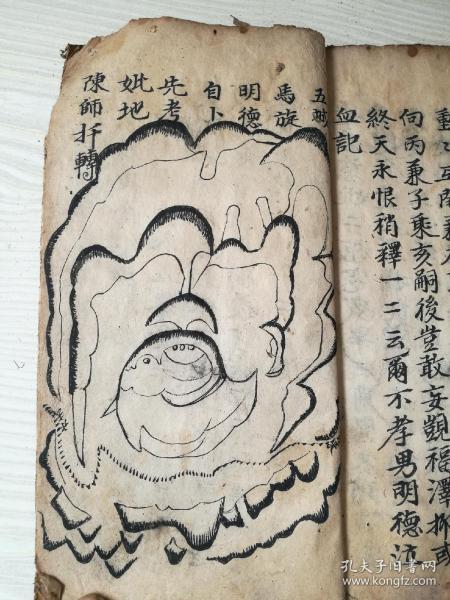 向丙兼子乘亥嗣後豈敢妄觀福澤抑或
終天永恨稍釋一二云爾不孝男明德泣
血記
五
馬旋
明德
自卜
先考
妣地
陳師扦轉
孔夫子旧书网
www.kongfz.com